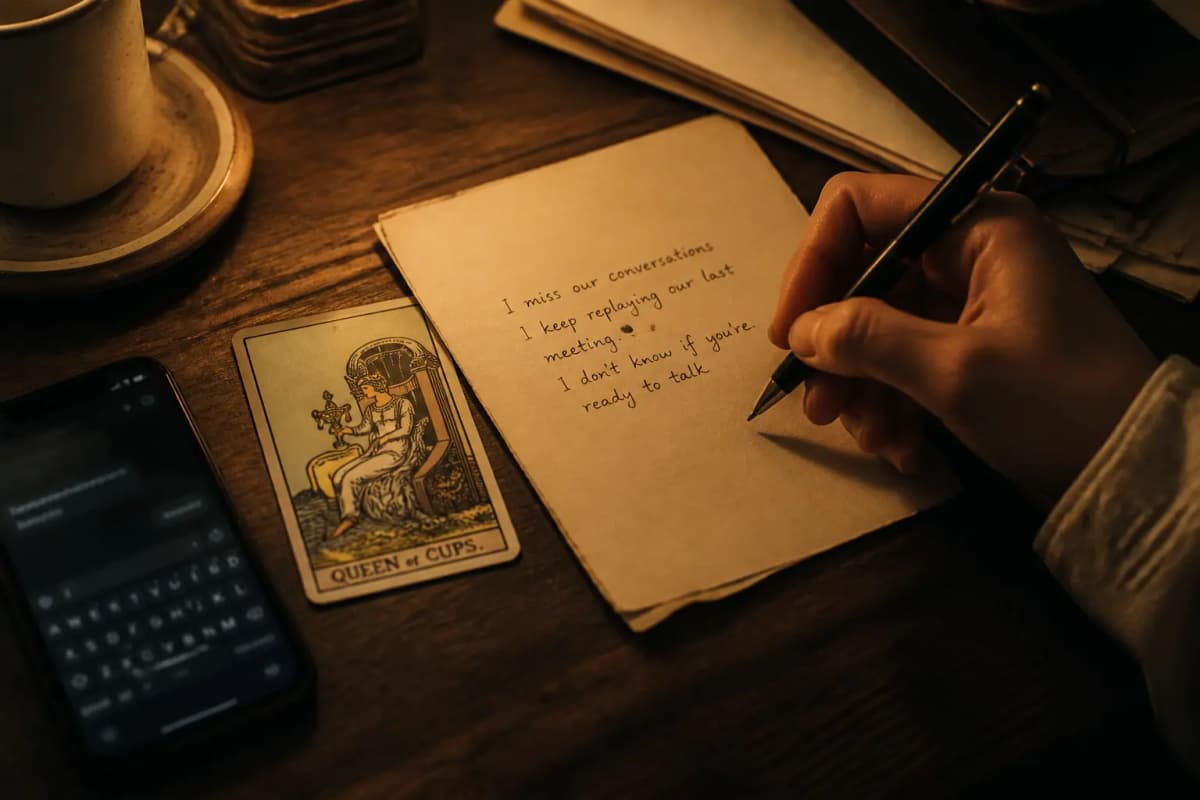 I miss our conversations
I keep replaying our last
meeting.
I don't know if you're
ready to talk
QUEEN of CUPS.